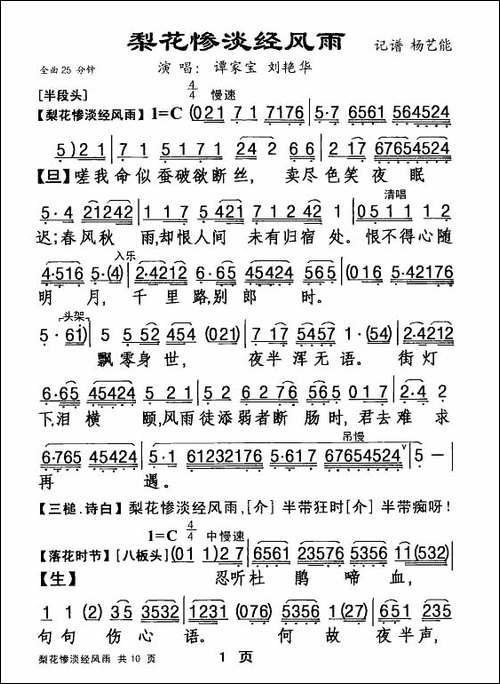 梨花惨淡经风雨
记谱 杨艺能
全曲25分钟
演唱: 谭家宝 刘艳华
[半段头] 4/4 慢速
【梨花惨淡经风雨】1=C (021 71 7176 | 5·7 6561 564524
5)21 | 71 5171 24 2421 | 66 2 17 67654524
【旦】嗟我命似蚕破欲断丝, 卖尽色笑夜眠
清唱
5·4 21242 | 117 5421 71242 1 | 0511 12
迟;春风秋 雨,却恨人间 未有归宿 处。恨不得心随
入乐
4·516 5·(4) | 2·4212 6·65 45424 5 | (016 5·42176
明 月, 千里路,别郎 时。
头架
5·61) | 5 52 454 (021) | 7 17 5457 1·(54) | 2·4212
飘零身世, 夜半浑无语。 街灯
6·65 45424 521 | 52 6276 565 017 | 2·4 2
下,泪横 颐,风雨徒添弱者断 肠时, 君去难 求
吊慢
6·765 45424 | 5· 61232176 5·617 67654524 | 5 —
再 遇。
【三槌.诗白】梨花惨淡经风雨,[介]半带狂时[介]半带痴呀!
1=C 4/4 中慢速
【落花时节】[八板头](01 1)27 | 6561 23576 5356 11(532)
【生】 忍听杜 鹃 啼 血,
11 (2)35 3532 | 1231 (076) 5356 1(27) | 651 235
句句 伤 心 语。 何 故 夜半声,
梨花惨淡经风雨 共10页
1 页